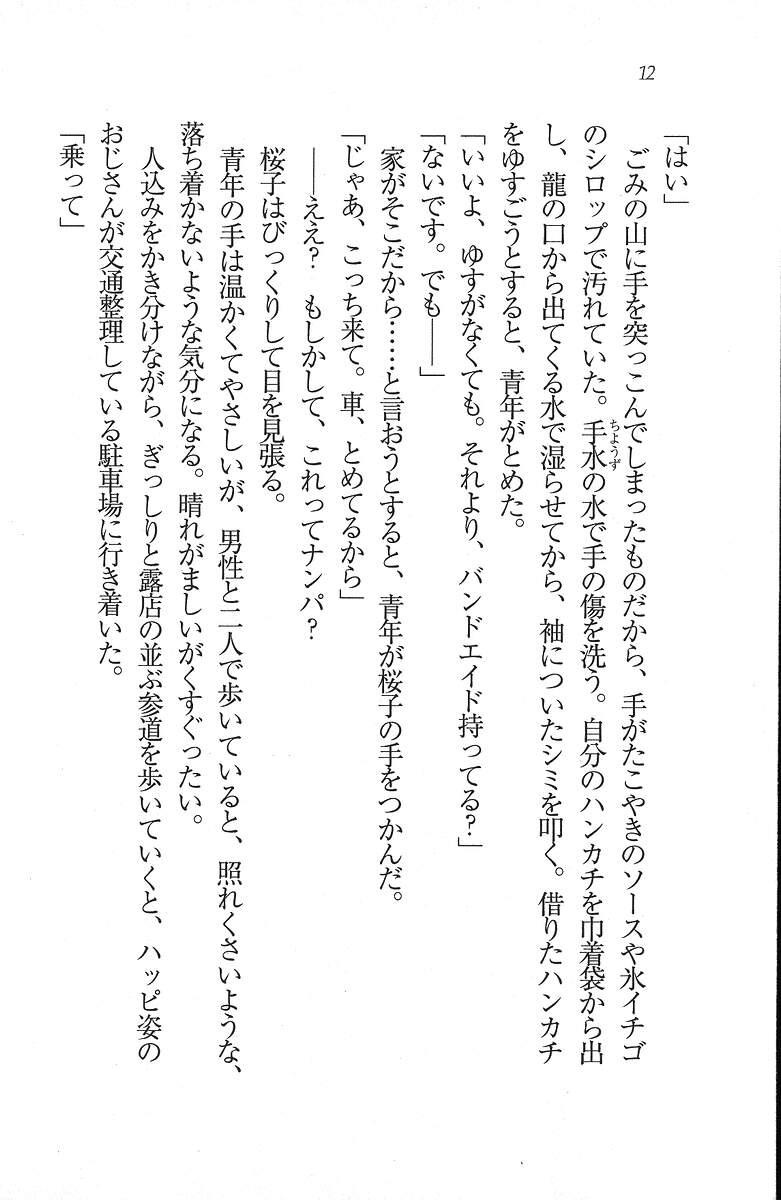 12
「はい」
　ごみの山に手を突っこんでしまったものだから、手がたこやきのソースや氷イチゴ
のシロップで汚れていた。手水の水で手の傷を洗う。自分のハンカチを巾着袋から出
ちょうず
し、龍の口から出てくる水で湿らせてから、袖についたシミを叩く。借りたハンカチ
をゆすごうとすると、青年がとめた。
「いいよ、ゆすがなくても。それより、バンドエイド持ってる？」
「ないです。でも――」
　家がそこだから……と言おうとすると、青年が桜子の手をつかんだ。
「じゃあ、こっち来て。車、とめてるから」
　――ええ？　もしかして、これってナンパ？
　桜子はびっくりして目を見張る。
　青年の手は温かくてやさしいが、男性と二人で歩いていると、照れくさいような、
落ち着かないような気分になる。晴れがましいがくすぐったい。
　人込みをかき分けながら、ぎっしりと露店の並ぶ参道を歩いていくと、ハッピ姿の
おじさんが交通整理している駐車場に行き着いた。
「乗って」